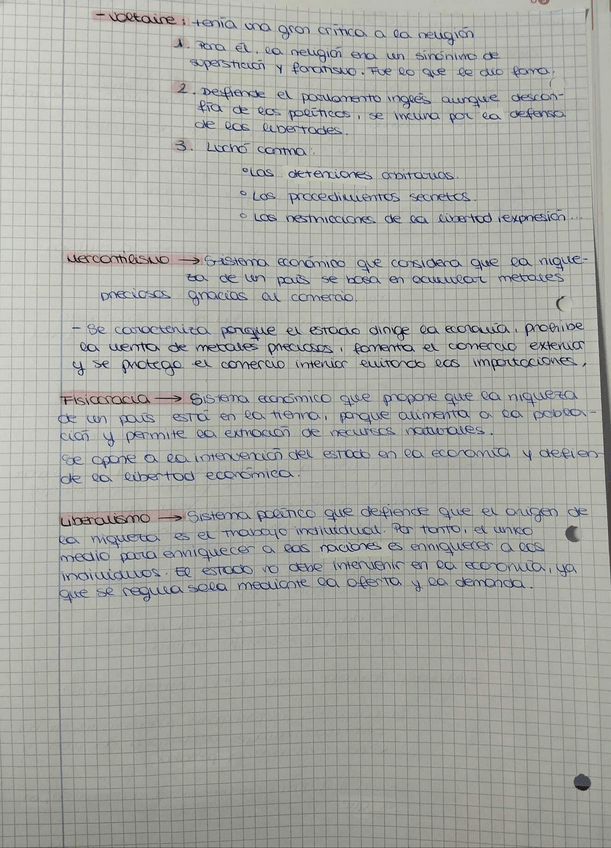 - Voltaire: tenía una gran crítica a la religión
1. Para él, la religión era un sinónimo de
superstición y fanatismo. Fue lo que le dio fama.
2. Defiende el parlamento inglés aunque descon-
fía de los políticos, se inclina por la defensa
de las libertades.
3. Luchó contra:
◦ Las detenciones arbitrarias.
◦ Los procedimientos secretos.
◦ Las restricciones de la libertad expresión...
Mercantilismo → Sistema económico que considera que la rique-
za de un país se basa en acumular metales
preciosos gracias al comercio.
- Se caracteriza porque el estado dirige la economía, prohibe
la venta de metales preciosos, fomenta el comercio exterior
y se protege el comercio interior evitando las importaciones.
Fisiocracia → Sistema económico que propone que la riqueza
de un país está en la tierra, porque alimenta a la pobla-
ción y permite la extracción de recursos naturales.
Se opone a la intervención del estado en la economía y defien
de la libertad económica.
Liberalismo → Sistema político que defiende que el origen de
la riqueza es el trabajo individual. Por tanto, el único
medio para enriquecer a las naciones es enriquecer a los
individuos. El estado no debe intervenir en la economía, ya
que se regula sola mediante la oferta y la demanda.